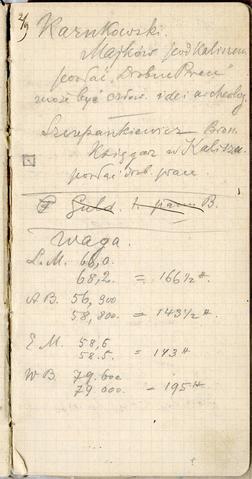 2/9 Karnkowski.
Majków pod Kaliszem
posłać "Drobne Prace"
może być człow. idei archeolog
Szczepankiewicz Bron.
Księgarz w Kaliszu
posłać drob. prace.
Guld. B.
Waga.
L. M. 68,0.
68,2. = 166 1/2 #.
A B. 56,900
58,800. = 143 1/2 #.
E M. 58,6
58.5. = 143 #
W B. 79.600
79 000. - 195 #